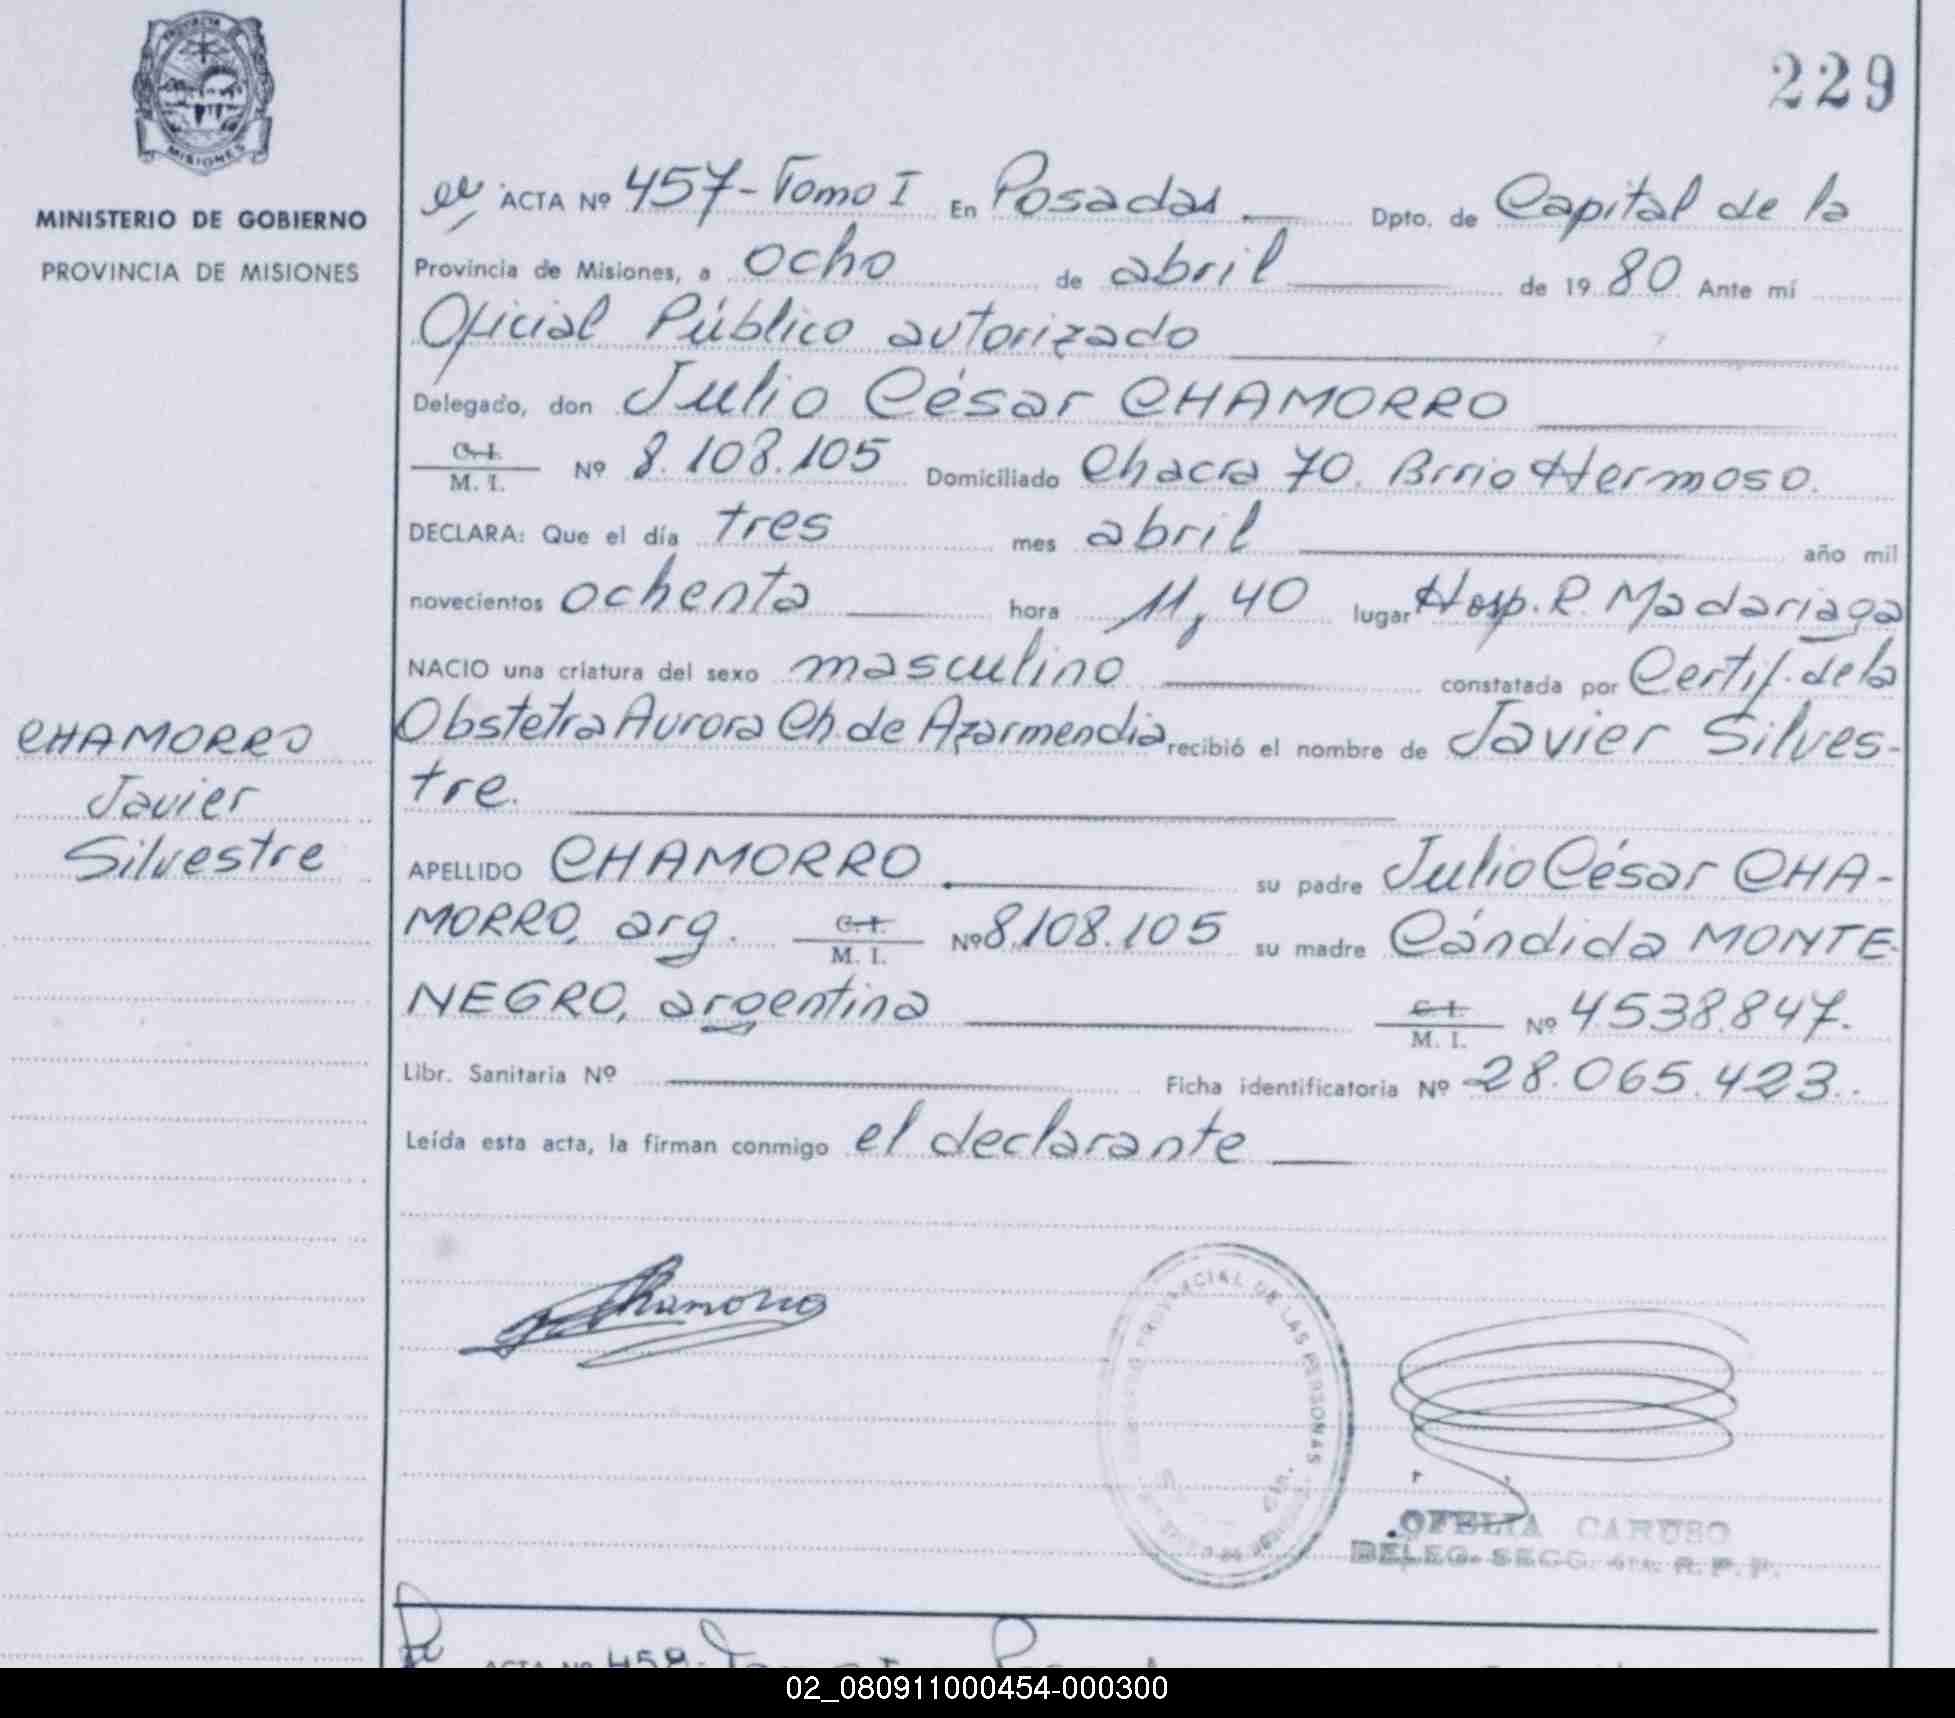 229
PROVINCIA DE
MISIONES
MINISTERIO DE GOBIERNO
PROVINCIA DE MISIONES
CHAMORRO
Javier
Silvestre
ACTA Nº 457-Tomo I En Posadas Dpto. de Capital de la
Provincia de Misiones, a ocho de abril de 1980 Ante mí
Oficial Público autorizado
Delegado, don Julio César CHAMORRO
C. I. M. I. Nº 8.108.105 Domiciliado Chacra 70. Brrio Hermoso.
DECLARA: Que el día tres mes abril año mil
novecientos ochenta hora 11,40 lugar Hosp. R. Madariaga
NACIO una criatura del sexo masculino constatada por Certif. de la
Obstetra Aurora Ch. de Azarmendia recibió el nombre de Javier Silves-
tre.
APELLIDO CHAMORRO su padre Julio César CHA-
MORRO, arg. C. I. M. I. Nº 8.108.105 su madre Cándida MONTE-
NEGRO, argentina C. I. M. I. Nº 4.538.847.
Libr. Sanitaria Nº Ficha identificatoria Nº 28.065.423.
Leída esta acta, la firman conmigo el declarante
Chamorro
PROVINCIAL DE LAS PERSONAS
OFELIA CARUSO
DELEG. SECC. 4ta. R. P. P.
ACTA Nº 458-Tomo I
02_080911000454-000300